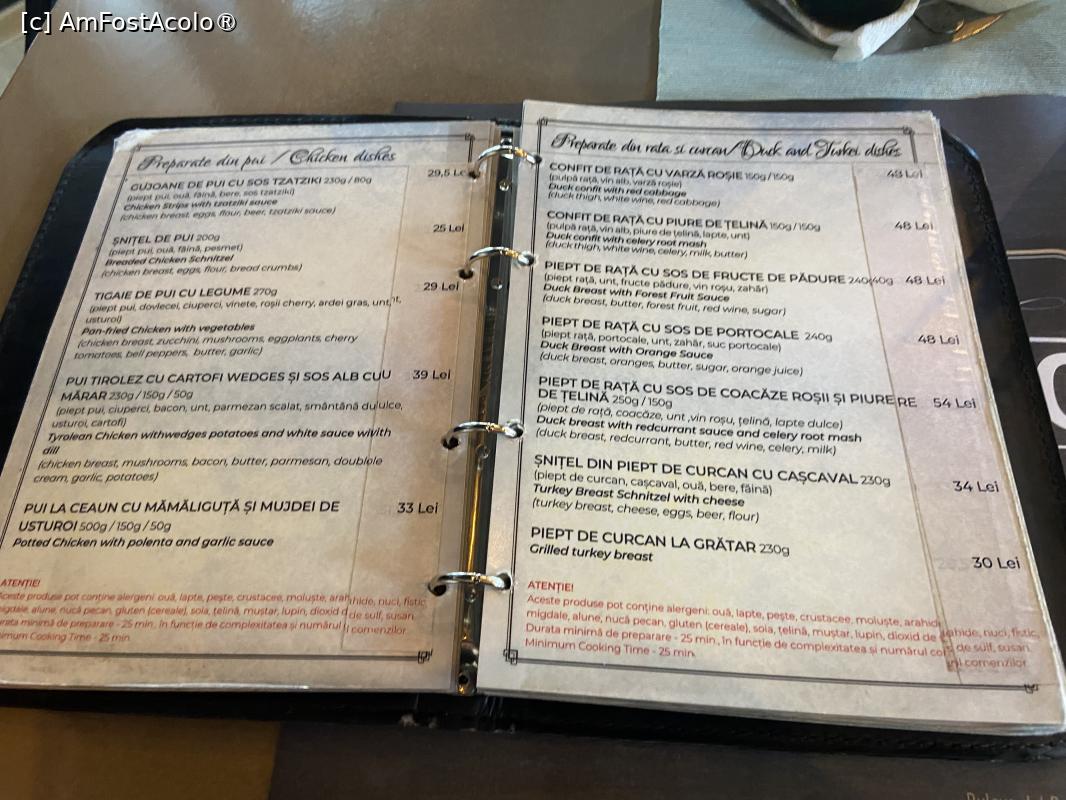 [c] AmFostAcolo®
Preparate din pui / Chicken dishes
GUJOANE DE PUI CU SOS TZATZIKI 230g / 80g 29,5 Le
(piept pui, ouă, făină, bere, sos tzatziki)
Chicken Strips with tzatziki sauce
(chicken breast, eggs, flour, beer, tzatziki sauce)
ȘNIȚEL DE PUI 200g 25 Lei
(piept pui, ouă, făină, pesmet)
Breaded Chicken Schnitzel
(chicken breast, eggs, flour, bread crumbs)
TIGAIE DE PUI CU LEGUME 270g 29 Lei
(piept pui, dovlecei, ciuperci, vinete, roșii cherry, ardei gras, unt,
usturoi)
Pan-fried Chicken with vegetables
(chicken breast, zucchini, mushrooms, eggplants, cherry
tomatoes, bell peppers, butter, garlic)
PUI TIROLEZ CU CARTOFI WEDGES ȘI SOS ALB CU 39 Lei
MĂRAR 230g / 150g / 50g
(piept pui, ciuperci, bacon, unt, parmezan scalat, smântână dulce,
usturoi, cartofi)
Tyrolean Chicken withwedges potatoes and white sauce with
dill
(chicken breast, mushrooms, bacon, butter, parmesan, double
cream, garlic, potatoes)
PUI LA CEAUN CU MĂMĂLIGUȚĂ ȘI MUJDEI DE 33 Lei
USTUROI 500g / 150g / 50g
Potted Chicken with polenta and garlic sauce
ATENȚIE!
Aceste produse pot conține alergeni: ouă, lapte, pește, crustacee, moluște, arahide, nuci, fistic,
migdale, alune, nucă pecan, gluten (cereale), soia, țelină, muștar, lupin, dioxid de sulf, susan.
Durata minimă de preparare - 25 min., în funcție de complexitatea și numărul comenzilor.
nimum Cooking Time - 25 min.
Preparate din rata si curcan/Duck and Turkei dishes
CONFIT DE RAȚĂ CU VARZĂ ROȘIE 150g / 150g 48 Lei
(pulpă rață, vin alb, varză roșie)
Duck confit with red cabbage
(duck thigh, white wine, red cabbage)
CONFIT DE RAȚĂ CU PIURE DE ȚELINĂ 150g / 150g 48 Lei
(pulpă rață, vin alb, piure de țelină, lapte, unt)
Duck confit with celery root mash
(duck thigh, white wine, celery, milk, butter)
PIEPT DE RAȚĂ CU SOS DE FRUCTE DE PĂDURE 240g 48 Lei
(piept rață, unt, fructe pădure, vin roșu, zahăr)
Duck Breast with Forest Fruit Sauce
(duck breast, butter, forest fruit, red wine, sugar)
PIEPT DE RAȚĂ CU SOS DE PORTOCALE 240g 48 Lei
(piept rață, portocale, unt, zahăr, suc portocale)
Duck Breast with Orange Sauce
(duck breast, oranges, butter, sugar, orange juice)
PIEPT DE RAȚĂ CU SOS DE COACĂZE ROȘII ȘI PIURE 54 Lei
DE ȚELINĂ 250g / 150g
(piept de rață, coacăze, unt ,vin roșu, țelină, lapte dulce)
Duck breast with redcurrant sauce and celery root mash
(duck breast, redcurrant, butter, red wine, celery, milk)
ȘNIȚEL DIN PIEPT DE CURCAN CU CAȘCAVAL 230g 34 Lei
(piept de curcan, cașcaval, ouă, bere, făină)
Turkey Breast Schnitzel with cheese
(turkey breast, cheese, eggs, beer, flour)
PIEPT DE CURCAN LA GRĂTAR 230g 30 Lei
Grilled turkey breast
ATENȚIE!
Aceste produse pot conține alergeni: ouă, lapte, pește, crustacee, moluște, arahide, nuci, fistic,
migdale, alune, nucă pecan, gluten (cereale), soia, țelină, muștar, lupin, dioxid de sulf, susan.
Durata minimă de preparare - 25 min., în funcție de complexitatea și numărul comenzilor.
Minimum Cooking Time - 25 min.